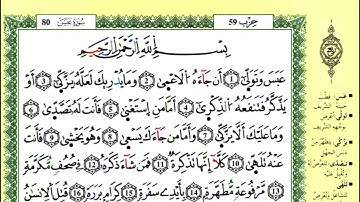 سُورَةُ عَبَسَ 80
حِزْب 59
بِسْمِ اللَّهِ الرَّحْمَٰنِ الرَّحِيمِ
عَبَسَ وَتَوَلَّىٰ 1 أَن جَاءَهُ الْأَعْمَىٰ 2 وَمَا يُدْرِيكَ لَعَلَّهُ يَزَّكَّىٰ 3 أَوْ
يَذَّكَّرُ فَتَنفَعُهُ الذِّكْرَىٰ 4 أَمَّا مَنِ اسْتَغْنَىٰ 5 فَأَنتَ لَهُ تَصَدَّىٰ 6
وَمَا عَلَيْكَ أَلَّا يَزَّكَّىٰ 7 وَأَمَّا مَن جَاءَكَ يَسْعَىٰ 8 وَهُوَ يَخْشَىٰ 9 فَأَنتَ
عَنْهُ تَلَهَّىٰ 10 كَلَّا إِنَّهَا تَذْكِرَةٌ 11 فَمَن شَاءَ ذَكَرَهُ 12 فِي صُحُفٍ مُّكَرَّمَةٍ
13 مَّرْفُوعَةٍ مُّطَهَّرَةٍ 14 بِأَيْدِي سَفَرَةٍ 15 كِرَامٍ بَرَرَةٍ 16 قُتِلَ الْإِنسَانُ